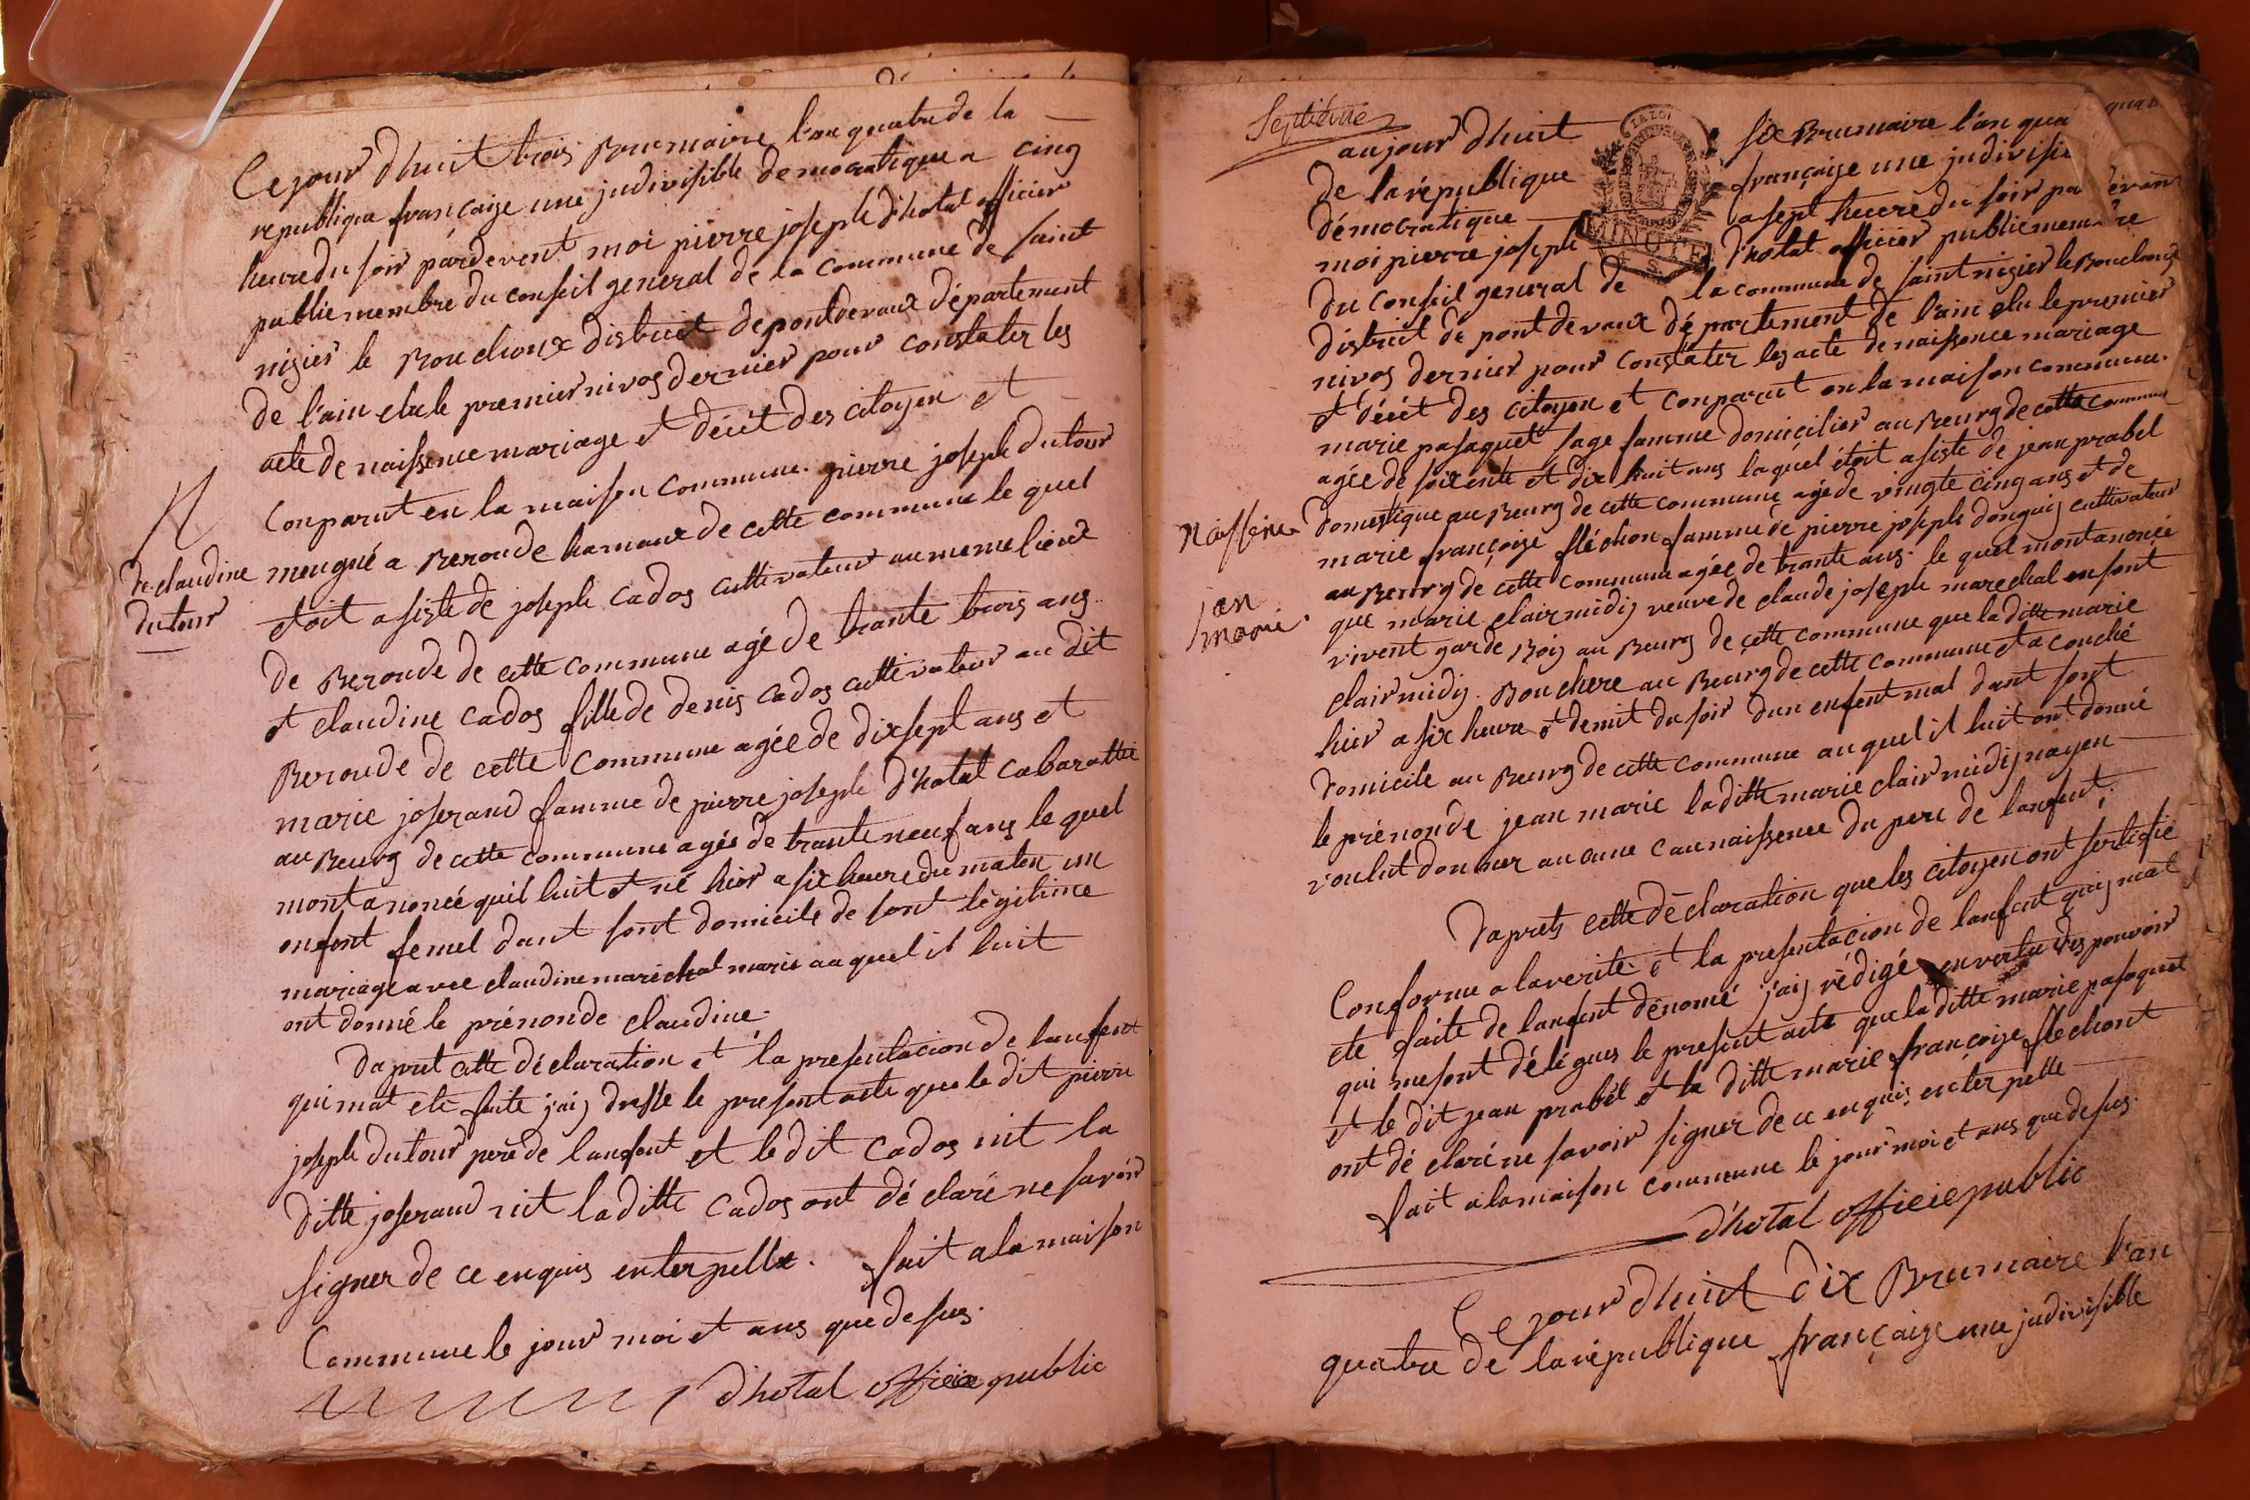 Cejour dhuit trois Brumaire l'an quatre de la
republique françaize une judivisible democratique a cinq
heure du soir pardevent moi pierre joseph d'hotal officier
public membre du conseil general de la commune de saint
nizier le Bouchoux district depontdevaux département
de l'ain elu le premier nivos dernier pour constater les
acte de naissence mariage et décet des citoyen et
Conparut en la maison commune. pierre joseph dutour
N
de claudine
dutour
meugné a Beroude hamaux de cette commune le quel
etoit asiste de joseph cados cultivateur au meme lieux
de Beroude de cette commune agé de trante trois ans
et claudine cados fille de denis cados cultivateur au dit
Beroude de cette commune agée de dixsept ans et
marie joserand famme de pierre joseph d'hotal cabarattié
au Beurg de cette commune agée de trante neuf ans le quel
mont anoncé quil luit et né hier a six heure du maten un
enfent femel dant sont domicile de sont légitime
mariage avec claudine marechal marie au quel il luit
ont donné le prénon de claudine.
Daprest cette déclaration et la presentacion de lanfent
qui mat ete faite j'aij dresse le present acte que le dit pierre
joseph dutour pere de lanfent et le dit cados nit la
ditte joserand nit la ditte cados ont dé claré ne savoir
signer de ce enquis enterpelle. fait a la maison
Commune le jour moi et ans que desus.
d'hotal officie public
Septieme
aujour dhuit six Brumaire l'an qua
de la république françaize une judivisi
LA LOI
MINUTE
démocratique a sept heure du soir pa devant
moi pierre joseph d'hotal officier public membre
du Conseil general de la commune de saint nizier le Bouchoux
district de pont devaux département de l'ain elu le premier
nivos dernier pour constater les acte de naissence mariage
et décet des citoyen et conparut en la maison commune.
marie pasaquet sage famme domicilier au Beurg de cette commune
agée de soixente et dix huit ans laquel étoit asiste de jean prabel
Naissence
jan
marie.
domestique au Beurg de cette commune agé de vingte cinq ans et de
marie françoize fléchon famme de pierre joseph donguij cultivateur
au Beurg de cette commune agée de trante ans. le quel mont anoncée
que marie clair midij veuve de claude joseph marechal en sont
vivent garde Boij au Beurg de cette commune que la ditte marie
clair midij. Bouchere au Beurg de cette commune et a couché
hier a six heure et demit du soir dun enfent mal dant sont
domicile au Beurg de cette commune au quel il luit ont donné
le prénon de jean marie la ditte marie clair midij nayen
voulut donner aucune connaissence du pere de lanfent;
Daprets cette déclaration que les citoyen ont sertifié
Conforme a la verité et la presentacion de lanfent quij mat
ete faite de lanfent dénomé j'aij rédigé en vertu des pouvoir
qui me sont délégues le present acte que la ditte marie pasaquet
et le dit jean prabel et la ditte marie françoize fléchont
ont dé claré ne savoir signer de ce enquis enterpelle
fait a la maison commune le jour moi et ans que desus.
d'hotal officie public
Cejour dhuit dix Brumaire l'an
quatre de la république françaize une judivisible